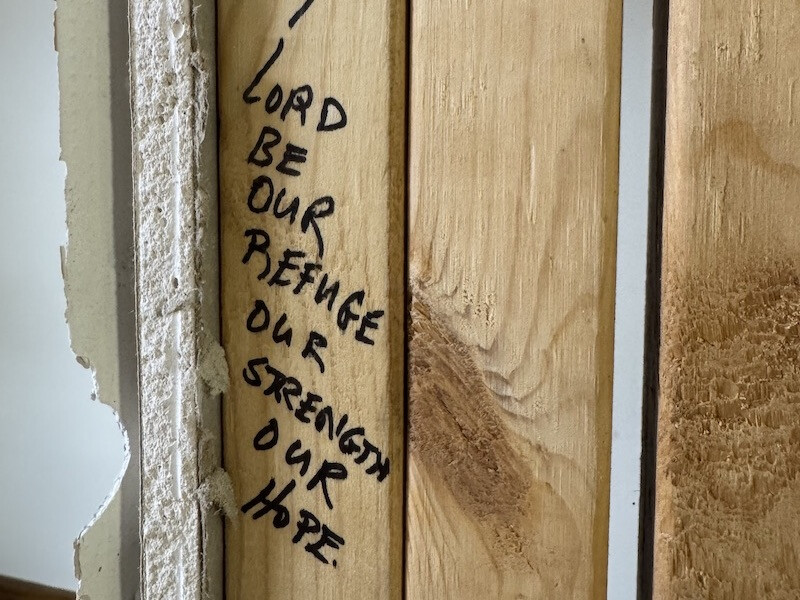 LORD
BE
OUR
REFUGE
OUR
STRENGTH
OUR
HOPE.